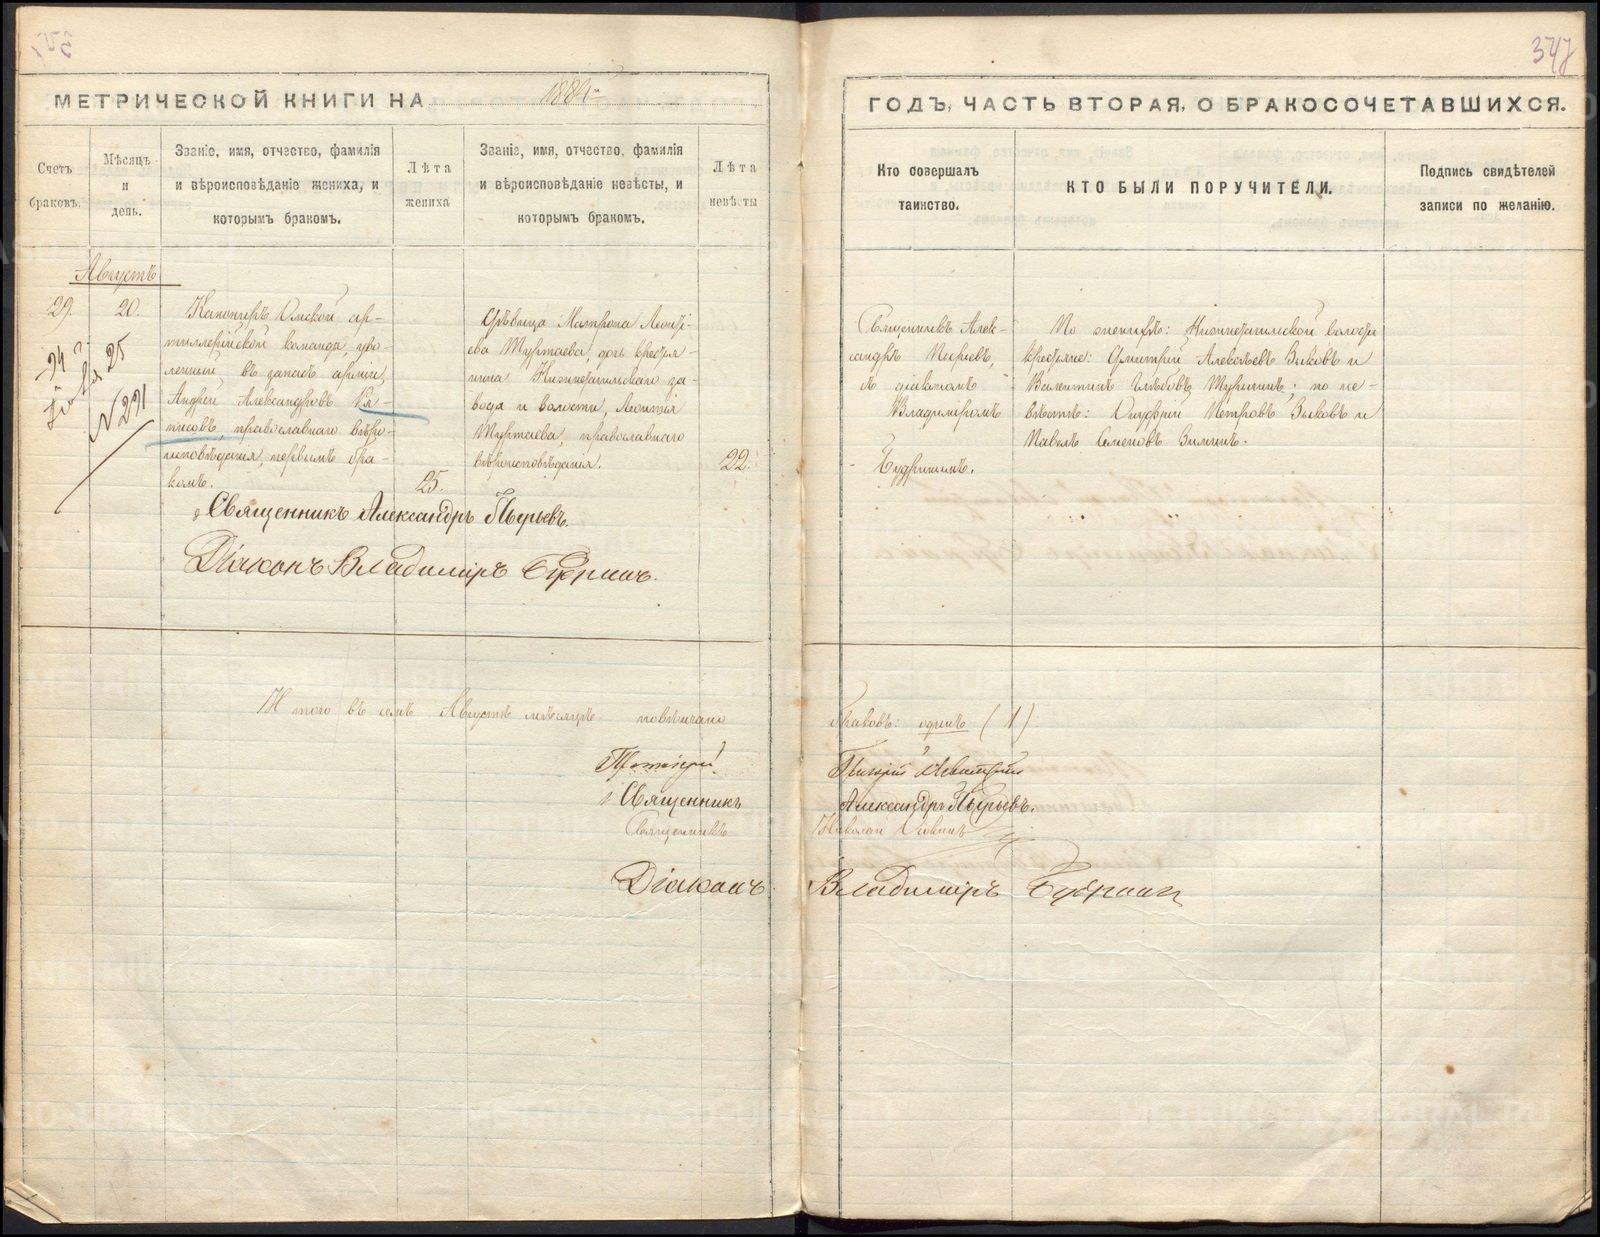 347
МЕТРИЧЕСКОЙ КНИГИ НА 1884
ГОДЪ, ЧАСТЬ ВТОРАЯ, О БРАКОСОЧЕТАВШИХСЯ.
Счетъ браковъ.
Мѣсяцъ и день.
Званіе, имя, отчество, фамилія
и вѣроисповѣданіе жениха, и
которымъ бракомъ.
Лѣта
жениха
Званіе, имя, отчество, фамилія
и вѣроисповѣданіе невѣсты, и
которымъ бракомъ.
Лѣта
невѣсты
Кто совершалъ
таинство.
КТО БЫЛИ ПОРУЧИТЕЛИ.
Подпись свидѣтелей
записи по желанію.
Августъ
29.
20.
Канониръ Омской ар-
тиллерійской команды, уво-
ленный въ запасъ арміи,
Андрей Александровъ
православнаго вѣро-
исповѣданія, первымъ бра-
комъ.
25.
№ 291
Дѣвица Матрона Леонті-
ева Туртаева, дочь крестья-
нина Нижнетагильскаго за-
вода и волости, Леонтія
Туртаева, православнаго
вѣроисповѣданія.
22.
Священникъ Алек-
сандръ Пырьевъ,
съ діакономъ
Владиміромъ
Будринымъ.
По женихѣ: Нижнетагильской волости
крестьяне: Дмитрій Алексѣевъ Зыковъ и
Валентинъ Глѣбовъ по не-
вѣстѣ: Онуфрій Петровъ Зыковъ и
Павелъ Семеновъ Зиминъ.
Священникъ Александръ Пырьевъ.
Діаконъ Владиміръ Будринъ.
Итого въ семъ Августѣ мѣсяцѣ повѣнчано браковъ: одинъ (1).
Протоіерей
Священникъ Александръ Пырьевъ.
Священникъ Николай
Діаконъ Владиміръ Будринъ